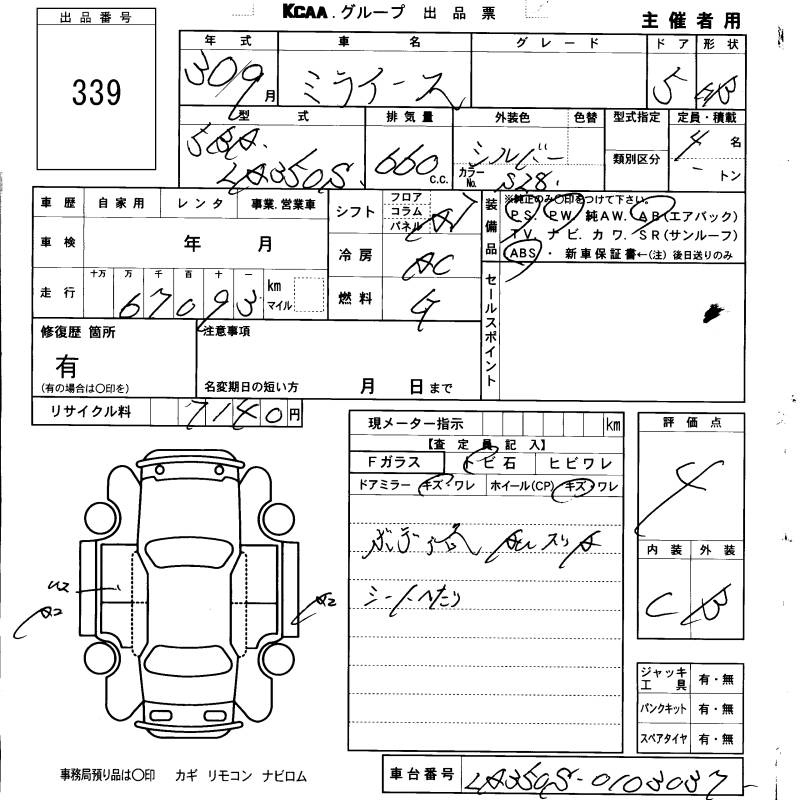 KCAA.グループ 出品票
主催者用
出品番号
339
年式 車名 グレード ドア 形状
30/9月 ミライース 5 HB
型式 排気量 外装色 色替 型式指定 定員・積載
5BA-LA350S 660 C.C. シルバー 4名
類別区分
カラーNo. S28 - トン
車歴 自家用 レンタ 事業.営業車
シフト フロア コラム パネル AT
装備品 ※純正のみ〇印をつけて下さい。
PS. PW. 純AW. AB(エアバック)
TV. ナビ. カワ. SR(サンルーフ)
ABS・新車保証書←(注)後日送りのみ
車検 年 月
冷房 AC
走行 十万 万 千 百 十 一 km マイル
67093
燃料 G
セールスポイント
修復歴 箇所
有
(有の場合は〇印を)
注意事項
名変期日の短い方 月 日まで
リサイクル料 7140円
現メーター指示 km
【査定員記入】
Fガラス トビ石 ヒビワレ
ドアミラー キズ・ワレ ホイール(CP) キズ・ワレ
シートへたり
評価点
4
内装 外装
C B
U2
A2
A2
ジャッキ工具 有・無
パンクキット 有・無
スペアタイヤ 有・無
事務局預り品は〇印 カギ リモコン ナビロム
車台番号 LA350S-0103037